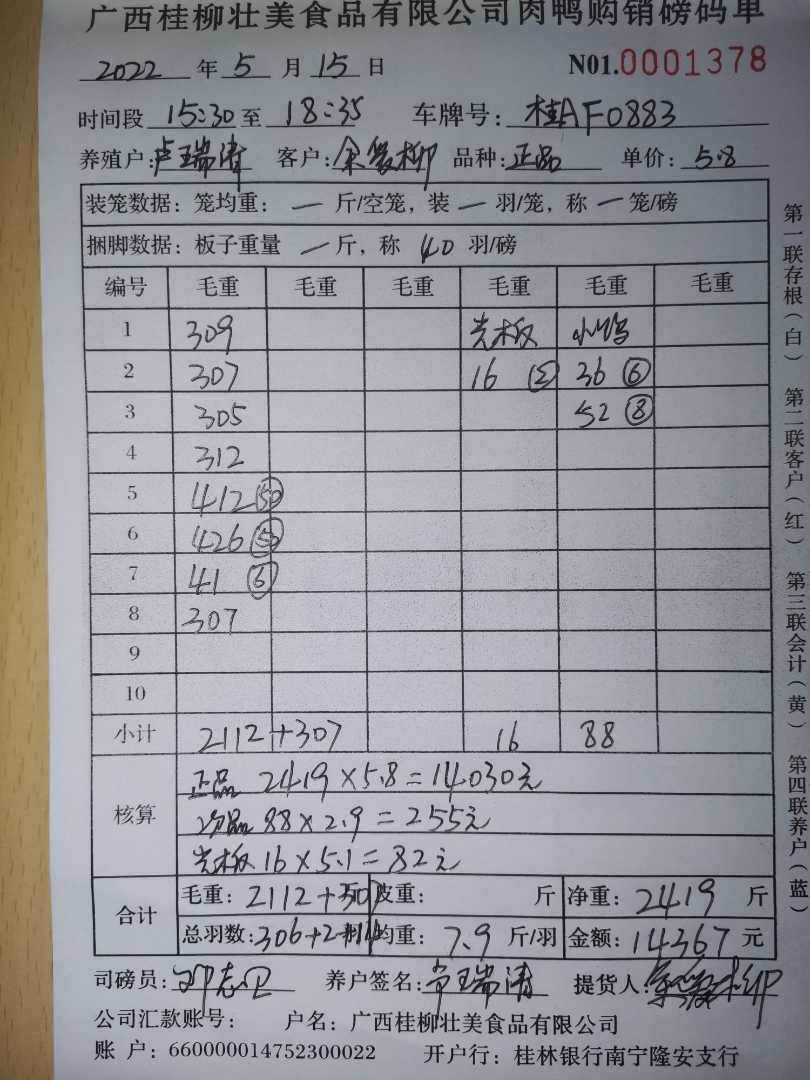 广西桂柳壮美食品有限公司肉鸭购销磅码单
2022 年 5 月 15 日 N01.0001378
时间段 15:30 至 18:35 车牌号: 桂AF0883
养殖户: 卢瑞涛 客户: 余爱柳 品种: 正品 单价: 5.8
装笼数据: 笼均重: 一 斤/空笼, 装 一 羽/笼, 称 一 笼/磅
捆脚数据: 板子重量 一 斤, 称 40 羽/磅
编号 毛重 毛重 毛重 毛重 毛重 毛重
1 309 光板 小鸭
2 307 16 (2) 36 (6)
3 305 52 (8)
4 312
5 412 (50)
6 426 (50)
7 41 (6)
8 307
9
10
小计 2112+307 16 88
核算 正品 2419×5.8=14030元
次品 88×2.9=255元
光板 16×5.1=82元
合计 毛重: 2112+307 皮重: 斤 净重: 2419 斤
总羽数: 306+2+14 均重: 7.9 斤/羽 金额: 14367 元
司磅员: 邓志卫 养户签名: 卢瑞涛 提货人: 余爱柳
公司汇款账号: 户名: 广西桂柳壮美食品有限公司
账 户: 660000014752300022 开户行: 桂林银行南宁隆安支行
第一联存根(白) 第二联客户(红) 第三联会计(黄) 第四联养户(蓝)